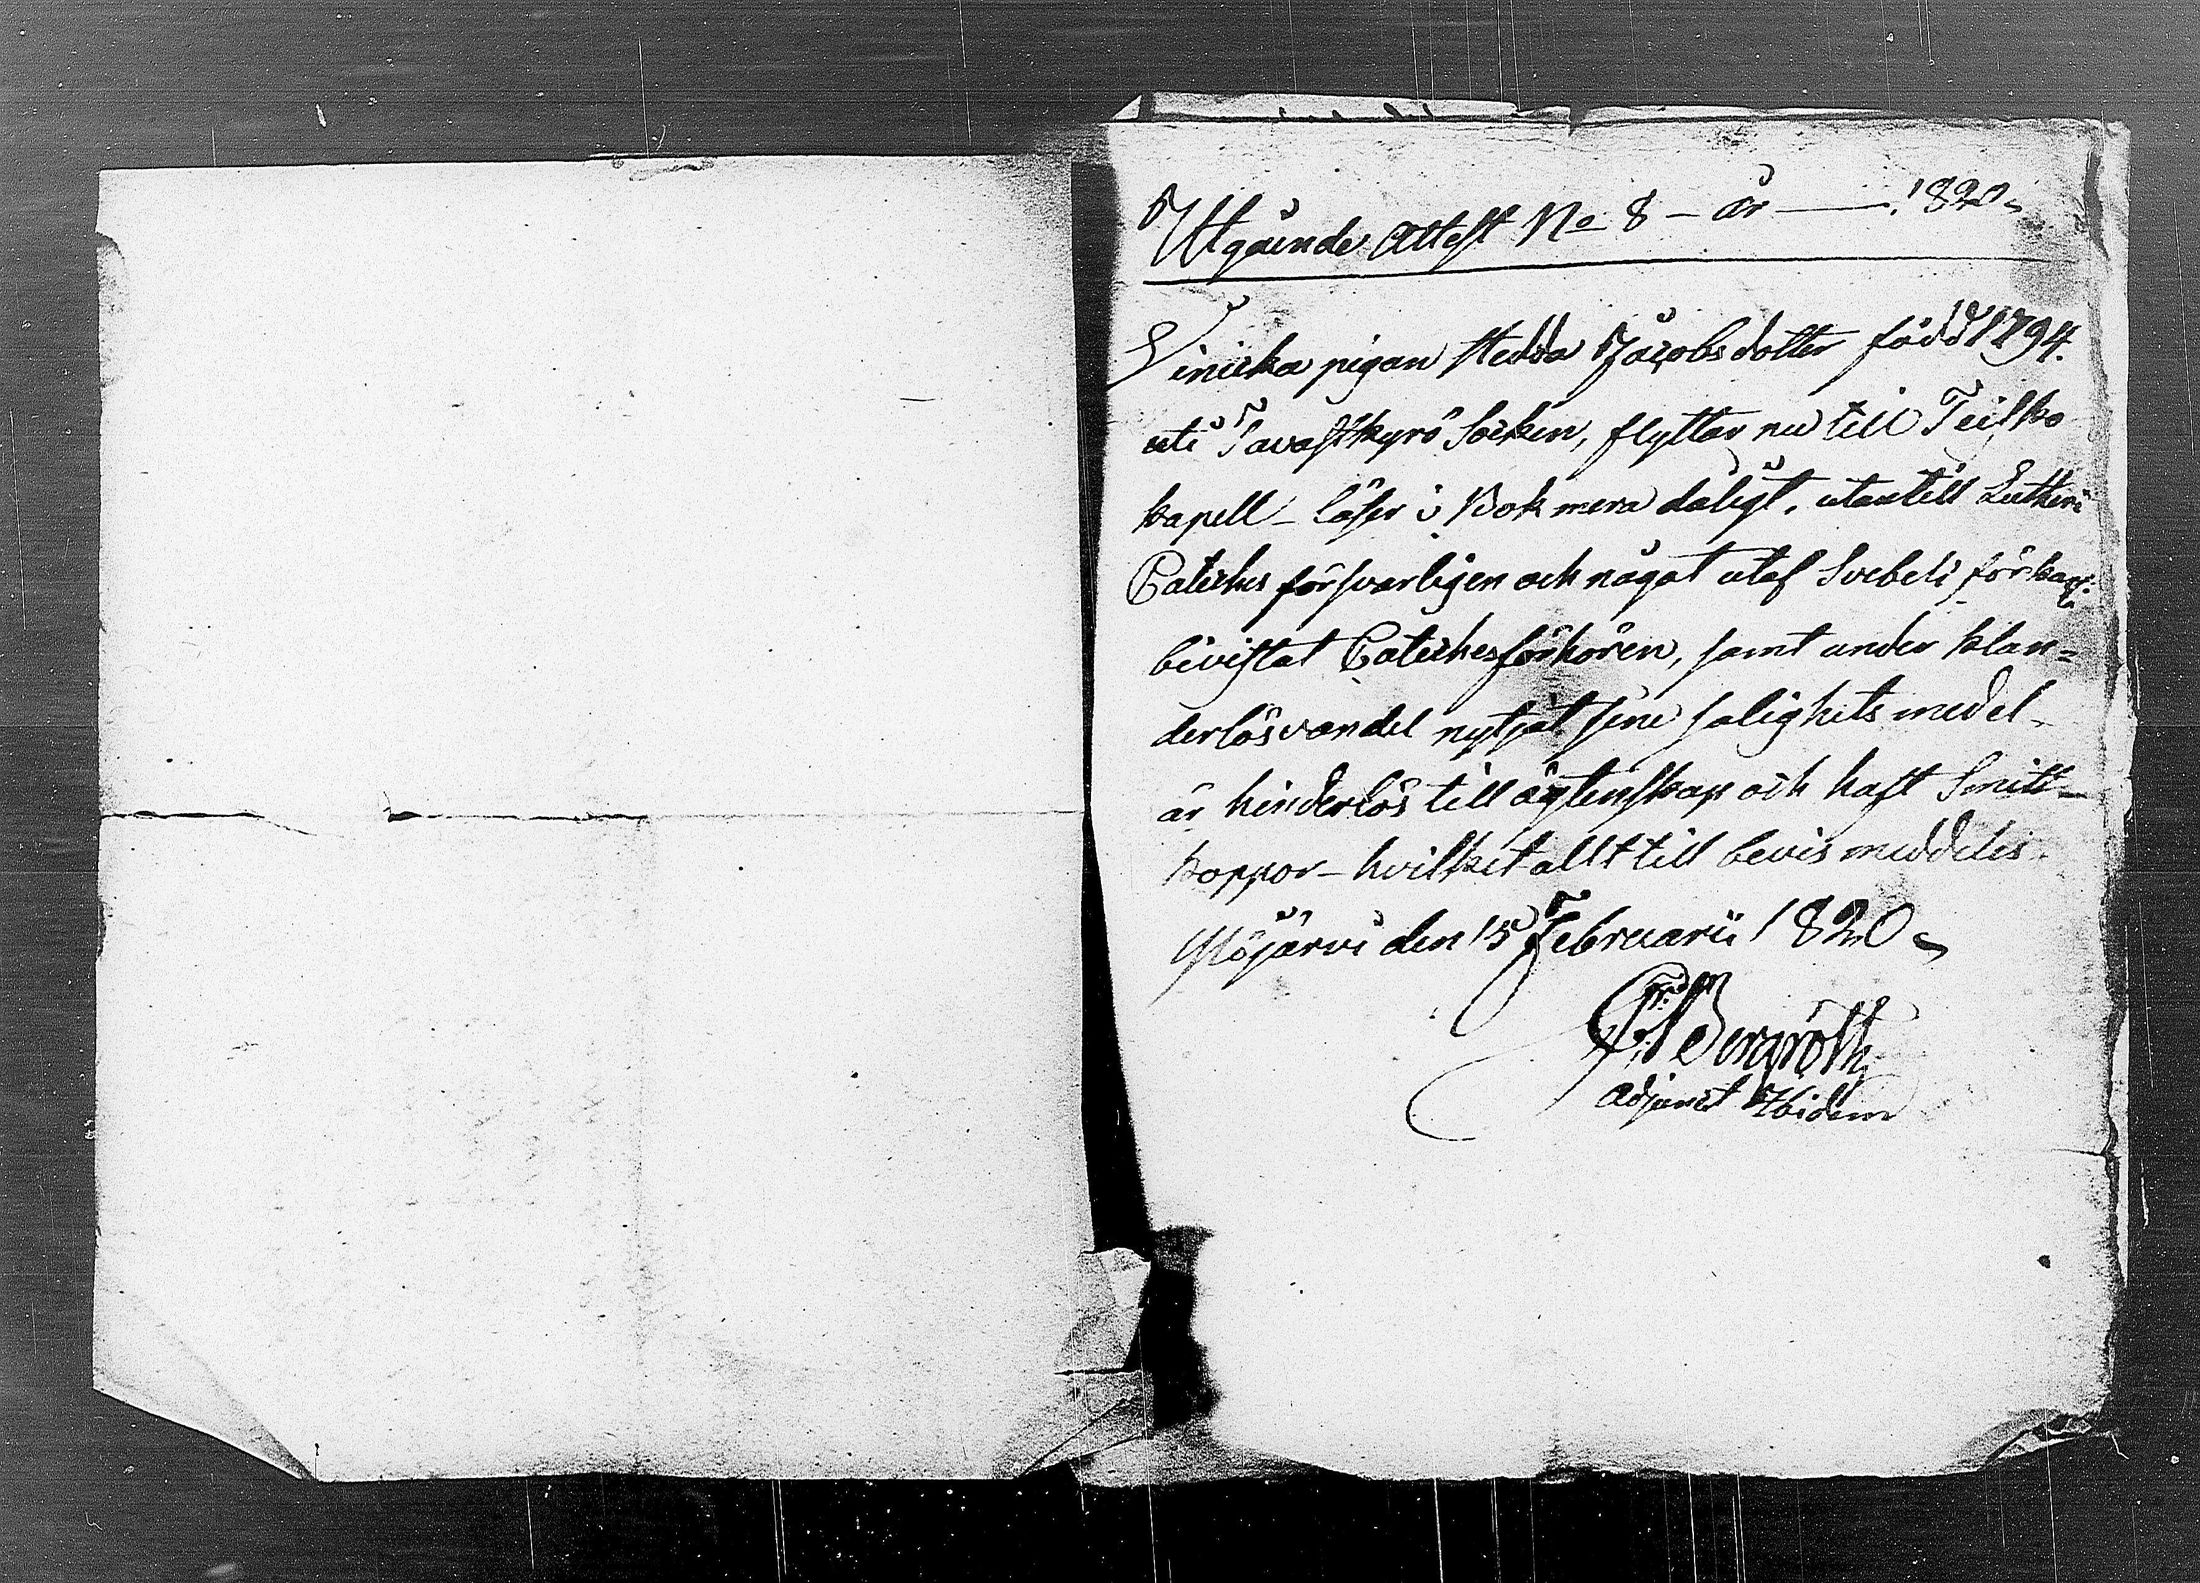 Utgående Attest No 8 – år — 1820
Pigan Hedda Jacobsdotter född 1794.
uti Tavastkyrö Socken, flyttar nu till Teisko
kapell – läser i Bok mera dåligt, utantill Lutheri
Cateches försvarligen och något utaf Svebeli förkl:
bevistat Catechesförhören, samt under klan=
derlös vandel nytjat sine salighets medel –
är hinderlös till ägtenskap och haft Smitt–
koppor – hvilket allt till bevis meddeles.
Ylöjärvi den 15 Februarii 1820
Bergroth
Adjunct Ibidem